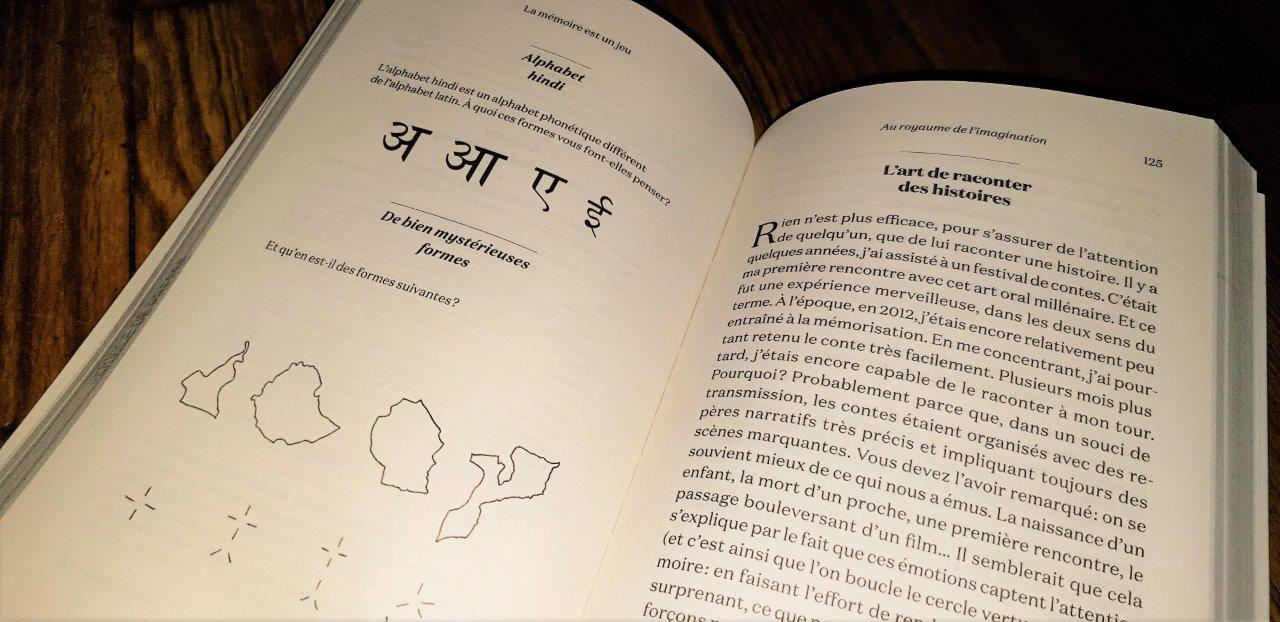 La mémoire est un jeu
Alphabet
hindi
L'alphabet hindi est un alphabet phonétique différent
de l'alphabet latin. À quoi ces formes vous font-elles penser?
अ आ ए ई
De bien mystérieuses
formes
Et qu'en est-il des formes suivantes?
Au royaume de l'imagination
125
L'art de raconter
des histoires
Rien n'est plus efficace, pour s'assurer de l'attention
de quelqu'un, que de lui raconter une histoire. Il y a
quelques années, j'ai assisté à un festival de contes. C'était
ma première rencontre avec cet art oral millénaire. Et ce
fut une expérience merveilleuse, dans les deux sens du
terme. À l'époque, en 2012, j'étais encore relativement peu
entraîné à la mémorisation. En me concentrant, j'ai pour-
tant retenu le conte très facilement. Plusieurs mois plus
tard, j'étais encore capable de le raconter à mon tour.
Pourquoi? Probablement parce que, dans un souci de
transmission, les contes étaient organisés avec des re-
pères narratifs très précis et impliquant toujours des
scènes marquantes. Vous devez l'avoir remarqué: on se
souvient mieux de ce qui nous a émus. La naissance d'un
enfant, la mort d'un proche, une première rencontre, le
passage bouleversant d'un film... Il semblerait que cela
s'explique par le fait que ces émotions captent l'attentio
(et c'est ainsi que l'on boucle le cercle vertu
moire: en faisant l'effort de ren
surprenant, ce que
forçons